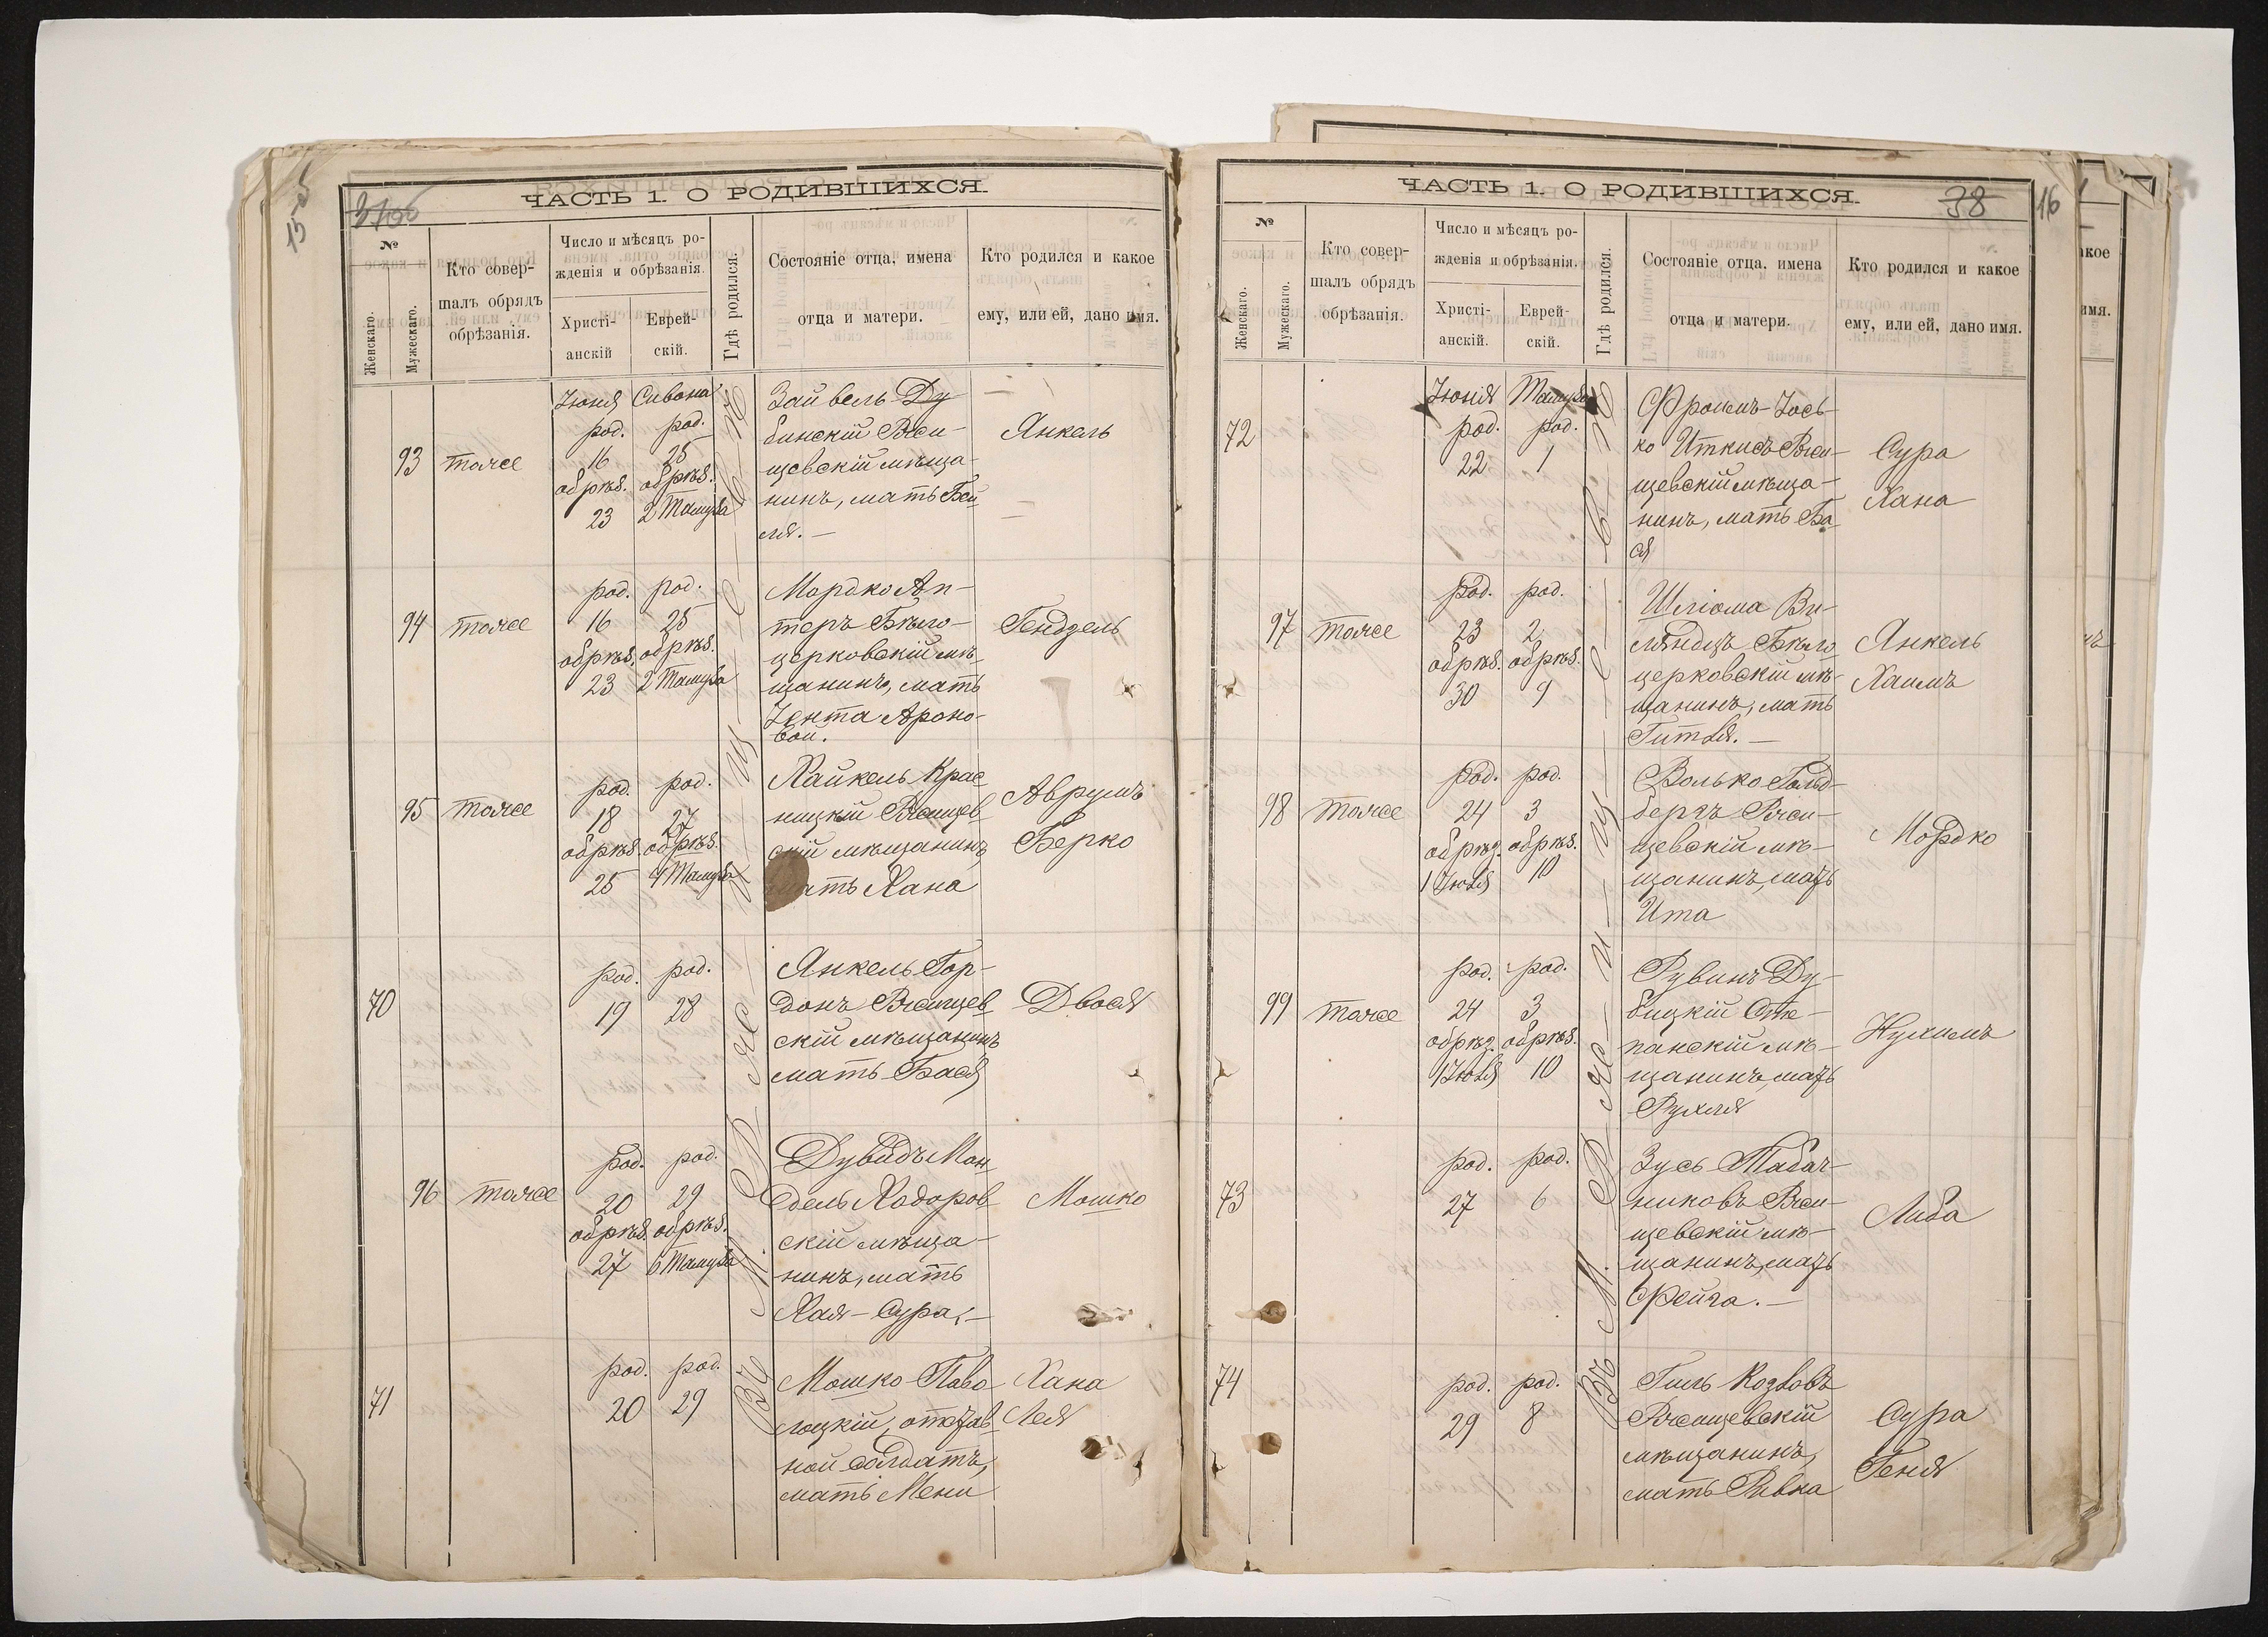 15 об
37об
ЧАСТЬ 1. О РОДИВШИХСЯ.
№
Женскаго.
Мужескаго.
Кто совер-
шалъ обрядъ
обрѣзанія.
Число и мѣсяцъ ро-
жденія и обрѣзанія.
Христі-
анскій
Еврей-
скій.
Гдѣ родился.
Состояніе отца, имена
отца и матери.
Кто родился и какое
ему, или ей, дано имя.
Въ М. Р
93
тоже
Іюня
род.
16
обрѣз.
23
Сивона
род.
25
обрѣз.
2 Тамуза
Зайвель Ду
бинскій Ржи-
щевскій мѣща-
нинъ, мать Бей
ля. —
Янкель
94
тоже
род.
16
обрѣз.
23
род.
25
обрѣз.
2 Тамуза
Мордко Ап-
теръ Бѣло-
церковскій мѣ-
щанинъ, мать
Іента Ароно-
вой.
Гендзель
95
тоже
род.
18
обрѣз.
25
род.
27
обрѣз.
4 Тамуза
Хайкель Крас
ницкій Ржищев
скій мѣщанинъ
мать Хана
Аврумъ
Берко
70
род.
19
род.
28
Янкель Гор-
донъ Ржищев
скій мѣщанинъ
мать Бася
Двося
96
тоже
род.
20
обрѣз.
27
род.
29
обрѣз.
6 Тамуза
Дувидъ Мен
дель Ходоров
скій мѣща-
нинъ, мать
Хая-Сура. —
Мошко
71
род.
20
род.
29
Мошко Паво
лоцкій, отстав
ной солдатъ,
мать Мени
Хана
Лея
38
16
ЧАСТЬ 1. О РОДИВШИХСЯ.
№
Женскаго.
Мужескаго.
Кто совер-
шалъ обрядъ
обрѣзанія.
Число и мѣсяцъ ро-
жденія и обрѣзанія.
Христі-
анскій.
Еврей-
скій.
Гдѣ родился.
Состояніе отца, имена
отца и матери.
Кто родился и какое
ему, или ей, дано имя.
Въ М. Р
72
Іюня
род.
22
Тамуза
род.
1
Фроимъ-Іось-
ко Иткисъ Ржи-
щевскій мѣща-
нинъ, мать Ба
ся
Сура
Хана
97
тоже
род.
23
обрѣз.
30
род.
2
обрѣз.
9
Шліома Ви-
Бѣло
церковскій мѣ-
щанинъ, мать
Гитля. —
Янкель
Хаимъ
98
тоже
род.
24
обрѣз.
1 Іюля
род.
3
обрѣз.
10
Волько Гольд-
бергъ Ржи-
щевскій мѣ-
щанинъ, мать
Ита
Мордко
99
тоже
род.
24
обрѣз.
1 Іюля
род.
3
обрѣз.
10
Рувинъ Ду-
бицкій Сте-
панскій мѣ-
щанинъ, мать
Рухля
Нухимъ
73
род.
27
род.
6
Зусь Табач-
никовъ Ржи-
щевскій мѣ-
щанинъ, мать
Фейга. —
Либа
74
род.
29
род.
8
Гиль Козловъ
Ржищевскій
мѣщанинъ,
мать Ривка
Сура
Геня
акое
имя.